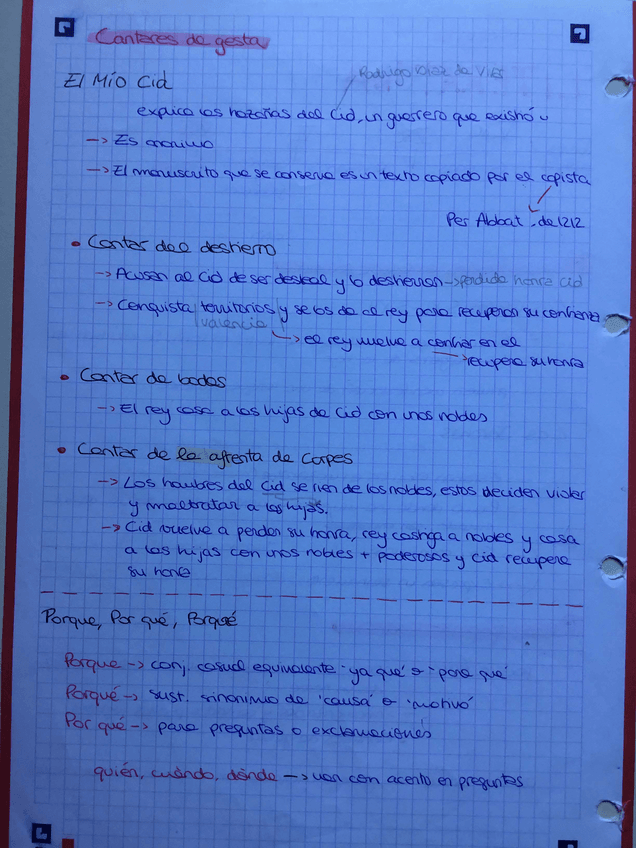 Cantares de gesta
El Mío Cid
Rodrigo Díaz de
explica las hazañas del Cid, un guerrero que existió
-> Es anonimo
-> El manuscrito que se conserva es un texto copiado por el copista
Per Abbat, de 1212
• Cantar del destierro
-> Acusan al Cid de ser desleal y lo destierran -> perdida honra cid
-> Conquista territorios y se los da al rey para recuperar su confianza
valencia
-> el rey vuelve a confiar en el
-> recupera su honra
• Cantar de bodas
-> El rey casa a las hijas de Cid con unos nobles
• Cantar de la afrenta de Corpes
-> Los hombres del Cid se rien de los nobles, estos deciden violar
y maltratar a las hijas.
-> Cid vuelve a perder su honra, rey castiga a nobles y casa
a las hijas con unos nobles + poderosos y cid recupera
su honra
Porque, Por qué, Porqué
Porque -> conj. casual equivalente 'ya que' o 'para que'
Porqué -> sust. sinonimo de 'causa' o 'motivo'
Por qué -> para preguntas o exclamaciones
quién, cuándo, dónde -> van con acento en preguntas